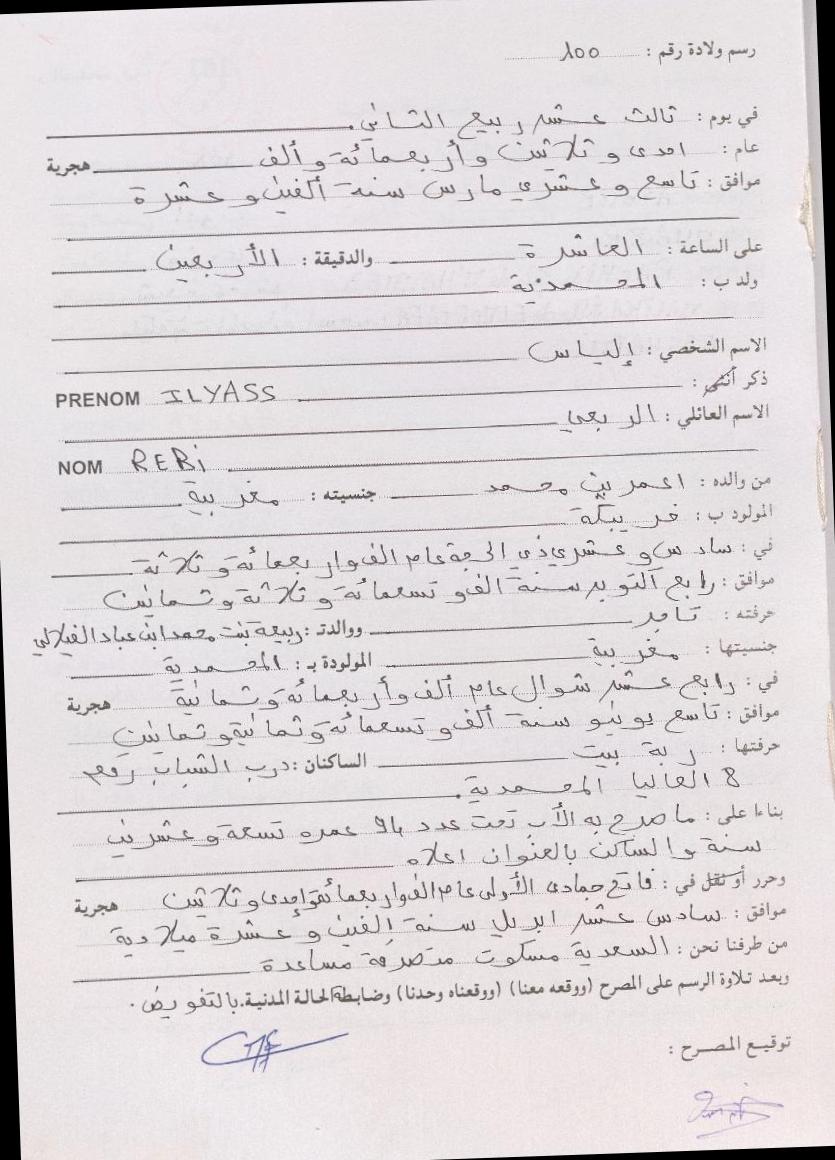 رسم ولادة رقم : 100
في يوم : ثالث عشر ربيع الثاني.
عام : احدى و ثلاثين وأربعمائة وألف هجرية
موافق : تاسع وعشري مارس سنة ألفين وعشرة
على الساعة : العاشرة والدقيقة : الأربعين
ولد ب : المحمدية
الاسم الشخصي : إلياس
ذكر أنثى :
PRENOM ILYASS
الاسم العائلي : الربعي
NOM REBi
من والده : اعمر بن محمد جنسيته : مغربية
المولود ب : خريبكة
في : سادس وعشري ذي الحجة عام الف واربعمائة وثلاثة
موافق : رابع اكتوبر سنة الف وتسعمائة وثلاثة وثمانين
حرفته : تاجر ووالدته : ربيعة بنت محمد ابن عباد الفيلالي
جنسيتها : مغربية المولودة بـ : المحمدية
في : رابع عشر شوال عام ألف وأربعمائة وثمانية هجرية
موافق : تاسع يونيو سنة ألف وتسعمائة وثمانية وثمانين
حرفتها : ربة بيت الساكنان : درب الشباب رقم
8 العاليا المحمدية.
بناءا على : ما صرح به الأب تحت عدد 94 عمره تسعة وعشرين
سنة والساكن بالعنوان اعلاه
وحرر أو نقل في : فاتح جمادى الأولى عام الف واربعمائة وإحدى وثلاثين هجرية
موافق : سادس عشر ابريل سنة الفين وعشرة ميلادية
من طرفنا نحن : السعدية مسكوت متصرفة مساعدة
وبعد تلاوة الرسم على المصرح (ووقعه معنا) (ووقعناه وحدنا) وضابطة الحالة المدنية. بالتفويض.
توقيع المصرح :